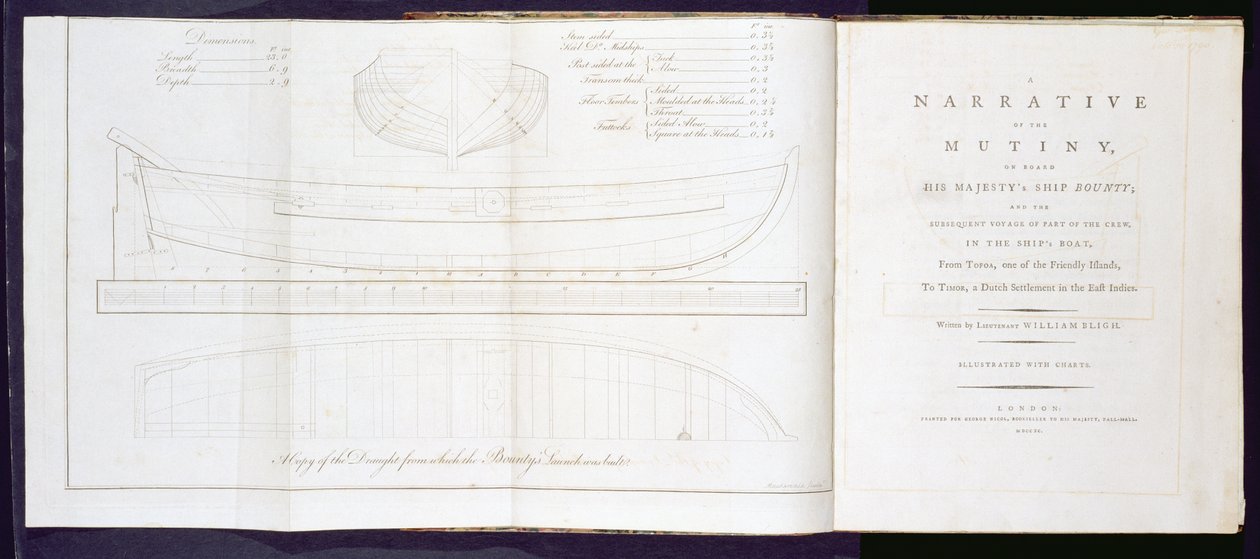 Demensions.
Ft. ins
Length 23.0
Breadth 6-9
Depth 2-9
Ft. ins
Stem sided 0.3½
Keel Do. Midships 0.3½
Post sided at the { Tuck 0.3½
Alow 0.3
Transom thick 0.2
Floor Timbers { Sided 0.2
Moulded at the Heads 0.2¼
Throat 0.3½
Futtocks { Sided Alow 0.2
Square at the Heads 0.1¾
A Copy of the Draught from which the Bounty's Launch was built.
A
NARRATIVE
OF THE
MUTINY,
ON BOARD
HIS MAJESTY's SHIP BOUNTY;
AND THE
SUBSEQUENT VOYAGE OF PART OF THE CREW,
IN THE SHIP's BOAT,
From TOFOA, one of the Friendly Iſlands,
To TIMOR, a Dutch Settlement in the Eaſt Indies.
Written by LIEUTENANT WILLIAM BLIGH.
ILLUSTRATED WITH CHARTS.
LONDON:
PRINTED FOR GEORGE NICOL, BOOKSELLER TO HIS MAJESTY, PALL-MALL.
MDCCXC.